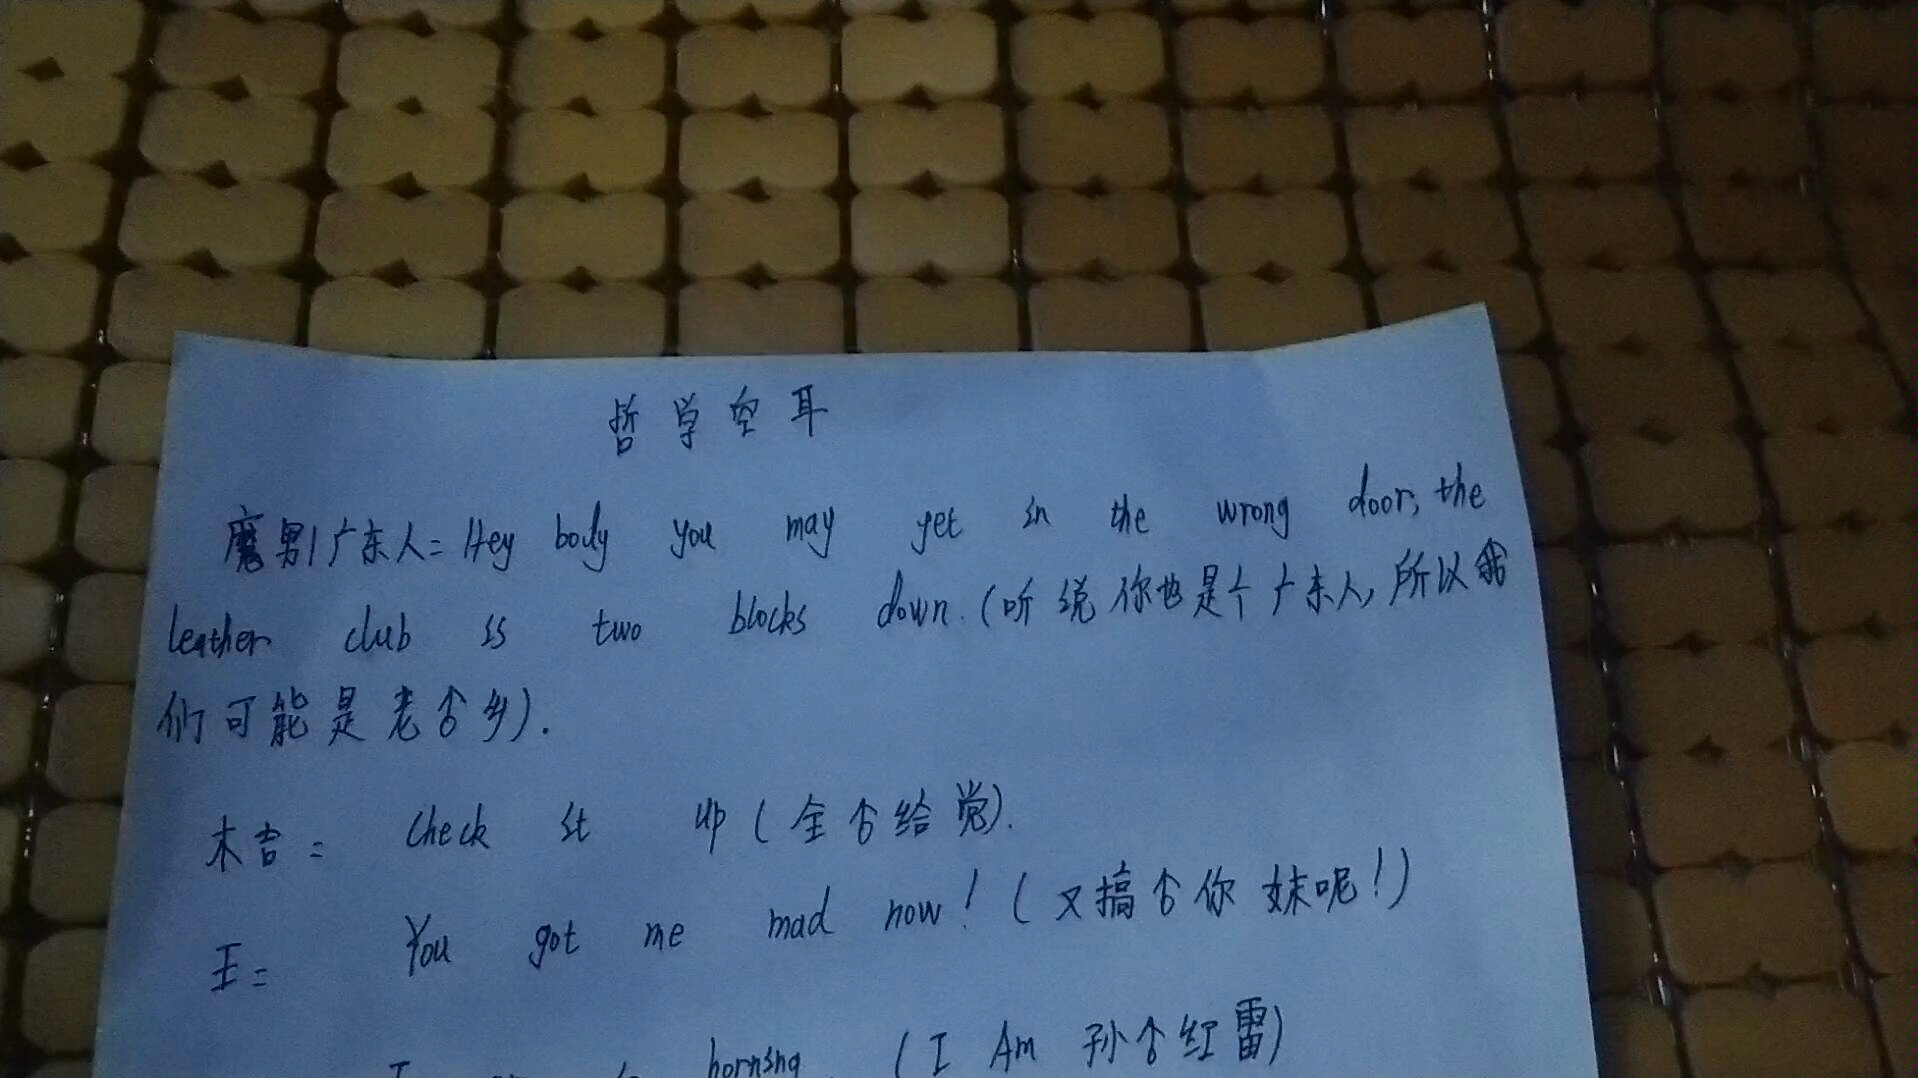 哲学空耳
魔男广东人: Hey body you may yet in the wrong door, the
leather club is two blocks down. (听说你也是个广东人, 所以我
们可能是老个乡).
木吉: Check it up (全个给党).
王: You got me mad now! (又搞个你妹呢!)
(I Am 孙个红雷)